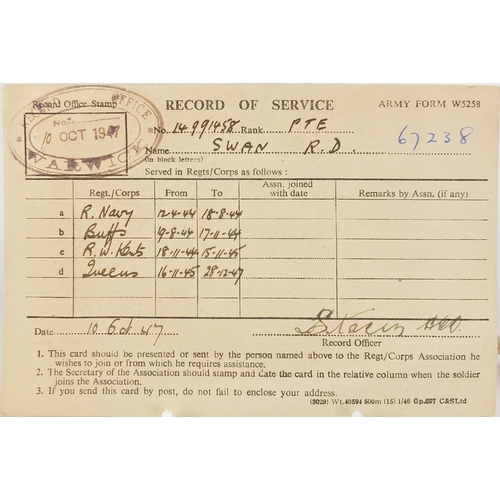 RECORD OFFICE
Record Office Stamp
No.
10 OCT 1947
WARWICK
RECORD OF SERVICE
ARMY FORM W5258
No. 14991458 Rank PTE
67238
Name SWAN R.D.
(in block letters)
Served in Regts/Corps as follows :
Regt./Corps From To Assn. joined with date Remarks by Assn. (if any)
a R. Navy 12-4-44 18-8-44
b Buffs 19-8-44 17-11-44
c R.W. Kents 18-11-44 15-11-45
d Queens 16-11-45 28-12-47
Date 10 Oct 47
Record Officer
1. This card should be presented or sent by the person named above to the Regt/Corps Association he
wishes to join or from which he requires assistance.
2. The Secretary of the Association should stamp and date the card in the relative column when the soldier
joins the Association.
3. If you send this card by post, do not fail to enclose your address.
(5029) Wt.40594 500m (15) 1/46 Gp.697 C&SLtd